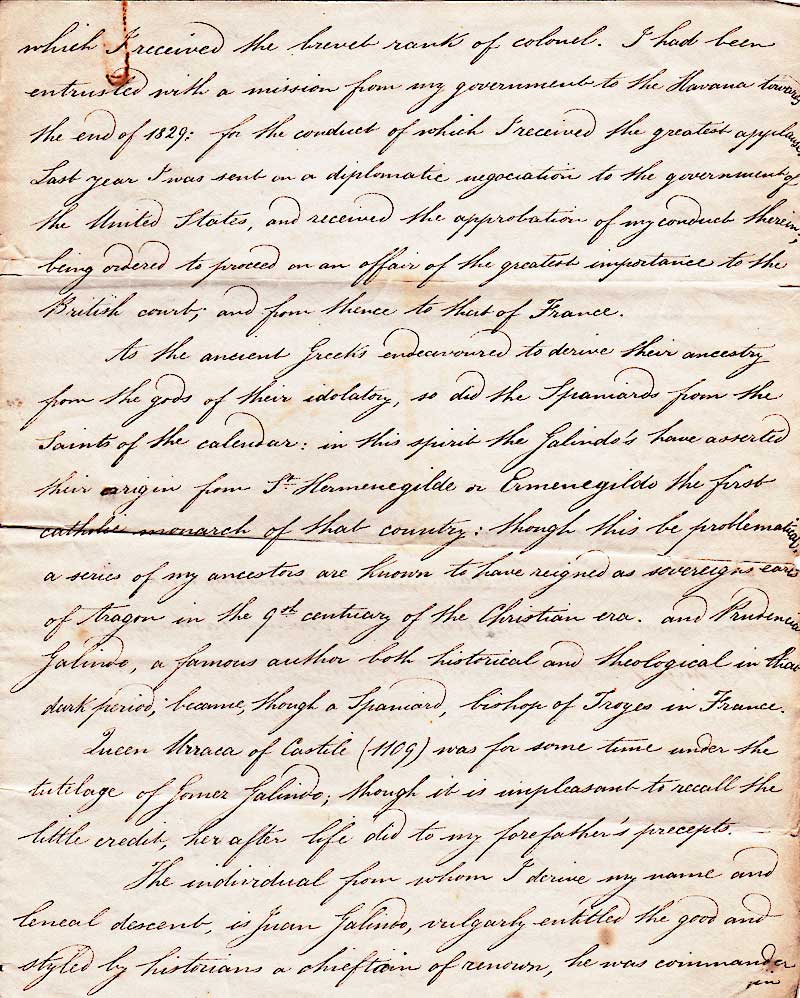 which I received the brevet rank of colonel. I had been
entrusted with a mission from my government to the Havana towards
the end of 1829: for the conduct of which I received the greatest applause
Last year I was sent on a diplomatic negociation to the government of
the United States, and received the approbation of my conduct therein,
being ordered to proceed on an affair of the greatest importance to the
British court; and from thence to that of France.
As the ancient Greeks endeavoured to derive their ancestry
from the gods of their idolatory, so did the Spaniards from the
Saints of the calendar: in this spirit the Galindo's have asserted
their origin from St. Hermenegilde or Ermenegildo the first
catholic monarch of that country: though this be problematical,
a series of my ancestors are known to have reigned as sovereigns earls
of Aragon in the 9th centuary of the Christian era. and Prudencio
Galindo, a famous author both historical and theological in that
dark period; became, though a Spaniard, bishop of Troyes in France.
Queen Urraca of Castile (1109) was for some time under the
tutilage of Gomer Galindo; though it is unpleasant to recall the
little credit, her after life did to my forefather's precepts.
The individual from whom I derive my name and
leneal descent, is Juan Galindo, vulgarly entitled the good and
styled by historians a chieftain of renown, he was commander
in